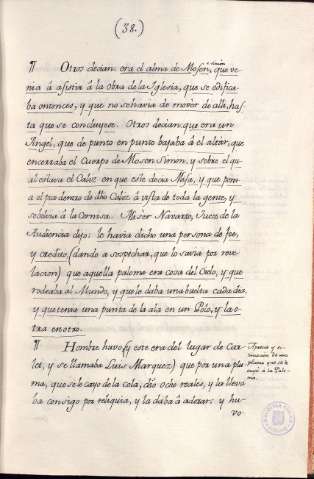 (38.)
¶ Otros decian era el alma de Mosen Simon, que ve-
nia á asistir á la obra de la Iglesia, que se edifica-
ba entonces, y que no se havia de mover de alli, has-
ta que se concluyese. Otros decian que era un
Angel, que de punto en punto bajaba á el altar, que
encerraba el Cuerpo de Mosen Simon, y sobre el qu-
al estava el Caliz con que este decia Misa, y que ponia
a el pie dentro de dho Caliz á vista de toda la gente, y
se bolvia á la Cornisa. Miser Navarro, Juez de la
Audiencia dijo: le havia dicho una persona de fee,
y credito (dando a sospechar, que lo savia por reve-
lacion) que aquella paloma era cosa del Cielo, y que
rodeaba al Mundo, y que le daba una buelta cada dia,
y que tenia una punta de la ala en un Polo, y la o-
tra en otro.
¶ Hombre huvo (y este era del lugar de Car-
let, y se llamaba Luis Marquez) que por una plu-
ma, que se le cayo de la cola, dió ocho reales, y la lleva-
ba consigo por reliquia, y la daba á adorar; y hu-
vo
Aprecio y es-
timacion de una
pluma que se le
cayó a la Palo-
ma.